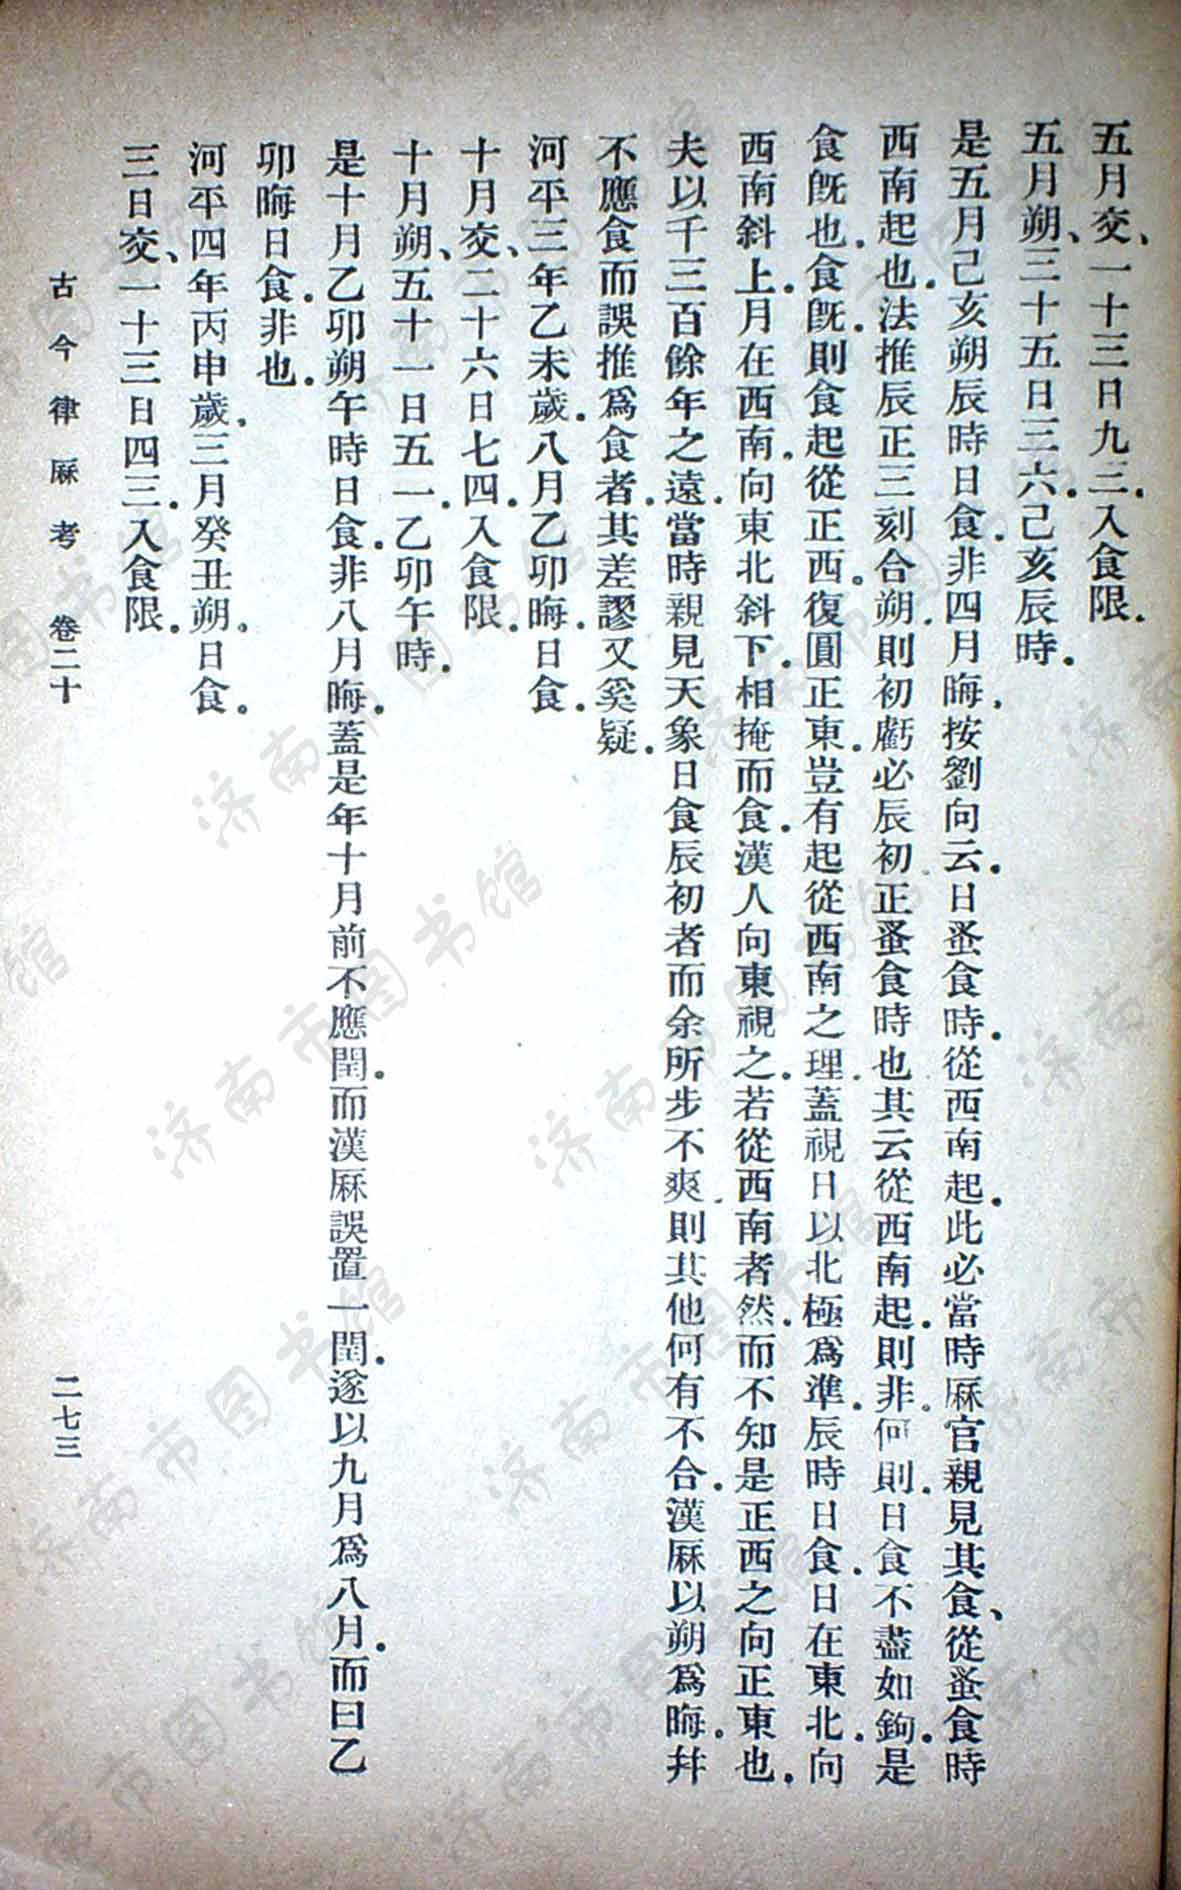 五月交、一十三日九三.入食限.
五月朔、三十五日三六.己亥辰時.
是五月己亥朔辰時日食.非四月晦.按劉向云.日蚤食時.從西南起.此必當時厤官親見其食、從蚤食時
西南起也.法推辰正三刻合朔.則初虧必辰初.正蚤食時也.其云從西南起.則非.何則.日食不盡如鉤.是
食旣也.食旣.則食起從正西.復圓正東.豈有起從西南之理.蓋視日以北極爲準.辰時日食.日在東北.向
西南斜上.月在西南.向東北斜下.相掩而食.漢人向東視之.若從西南者然.而不知是正西之向正東也.
夫以千三百餘年之遠.當時親見天象日食辰初者而余所步不爽.則其他何有不合.漢厤以朔爲晦.幷
不應食而誤推爲食者.其差謬又奚疑.
河平三年乙未歲.八月乙卯晦.日食.
十月交、二十六日七四.入食限.
十月朔、五十一日五一.乙卯午時.
是十月乙卯朔午時日食.非八月晦.蓋是年十月前不應閏.而漢厤誤置一閏.遂以九月爲八月.而曰乙
卯晦日食.非也.
河平四年丙申歲.三月癸丑朔.日食.
三日交、一十三日四三.入食限.
古今律厤考 卷二十 二七三
济南市图书馆